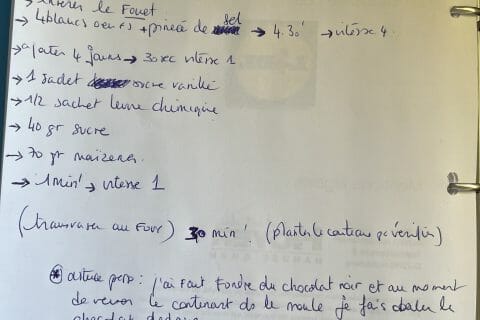 → insérer le Fouet
→ 4 blancs oeufs + pincée de sel → 4.30' → vitesse 4
→ ajouter 4 jaunes → 30 sec vitesse 1
→ 1 sachet sucre vanillé
→ 1/2 sachet levure chimique
→ 40 gr sucre
→ 70 gr maïzena
→ 1 min' → vitesse 1
(transvaser au Four) 30 min'. (planter le couteau pr vérifier)
* astuce perso : j'ai fait fondre du chocolat noir et au moment
de verser le contenant de le moule je fais couler le
chocolat dedans